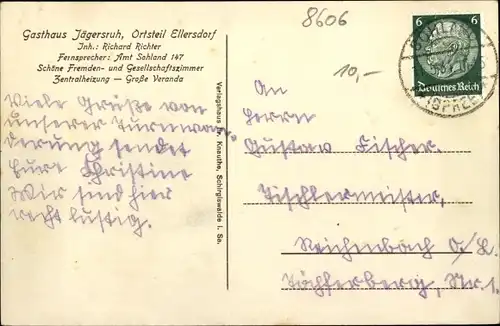 8606
Gasthaus Jägersruh, Ortsteil Ellersdorf
Inh.: Richard Richter
Fernsprecher: Amt Sohland 147
Schöne Fremden- und Gesellschaftszimmer
Zentralheizung — Große Veranda
6 6
Deutsches Reich
SOHLAND
(SPREE)
10,-
Viele Grüße von
unserer Turnwan-
derung sendet
Eure Christine
Wir sind hier
recht lustig.
Verlagshaus Br. Knauthe, Schirgiswalde i. Sa.
An
Herrn
Gustav Fischer.
Tischlermeister,
Reichenbach O/L.
Töpferberg, Nr. 1.